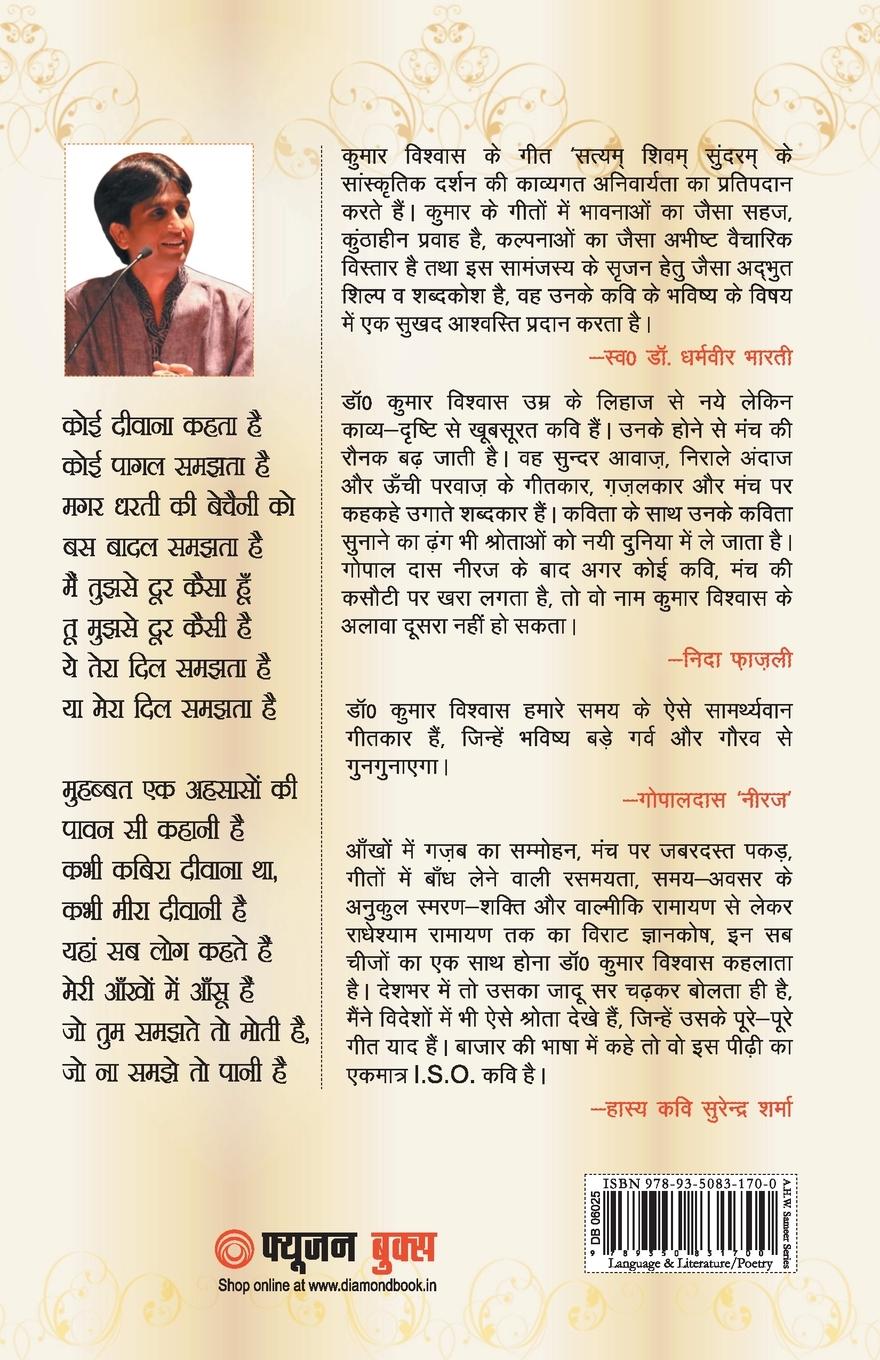 कोई दीवाना कहता है
कोई पागल समझता है
मगर धरती की बेचैनी को
बस बादल समझता है
मैं तुझसे दूर कैसा हूँ
तू मुझसे दूर कैसी है
ये तेरा दिल समझता है
या मेरा दिल समझता है
मुहब्बत एक अहसासों की
पावन सी कहानी है
कभी कबिरा दीवाना था,
कभी मीरा दीवानी है
यहां सब लोग कहते हैं
मेरी आँखों में आँसू हैं
जो तुम समझते तो मोती है,
जो ना समझे तो पानी है
कुमार विश्वास के गीत ‘सत्यम् शिवम् सुंदरम् के
सांस्कृतिक दर्शन की काव्यगत अनिवार्यता का प्रतिपदान
करते हैं। कुमार के गीतों में भावनाओं का जैसा सहज,
कुंठाहीन प्रवाह है, कल्पनाओं का जैसा अभीष्ट वैचारिक
विस्तार है तथा इस सामंजस्य के सृजन हेतु जैसा अद्भुत
शिल्प व शब्दकोश है, वह उनके कवि के भविष्य के विषय
में एक सुखद आश्वस्ति प्रदान करता है।
—स्व0 डॉ. धर्मवीर भारती
डॉ0 कुमार विश्वास उम्र के लिहाज से नये लेकिन
काव्य–दृष्टि से खूबसूरत कवि हैं। उनके होने से मंच की
रौनक बढ़ जाती है। वह सुन्दर आवाज़, निराले अंदाज
और ऊँची परवाज़ के गीतकार, ग़ज़लकार और मंच पर
कहकहे उगाते शब्दकार हैं। कविता के साथ उनके कविता
सुनाने का ढ़ंग भी श्रोताओं को नयी दुनिया में ले जाता है।
गोपाल दास नीरज के बाद अगर कोई कवि, मंच की
कसौटी पर खरा लगता है, तो वो नाम कुमार विश्वास के
अलावा दूसरा नहीं हो सकता।
—निदा फ़ाज़ली
डॉ0 कुमार विश्वास हमारे समय के ऐसे सामर्थ्यवान
गीतकार हैं, जिन्हें भविष्य बड़े गर्व और गौरव से
गुनगुनाएगा।
—गोपालदास ‘नीरज’
आँखों में गज़ब का सम्मोहन, मंच पर जबरदस्त पकड़,
गीतों में बाँध लेने वाली रसमयता, समय–अवसर के
अनुकुल स्मरण–शक्ति और वाल्मीकि रामायण से लेकर
राधेश्याम रामायण तक का विराट ज्ञानकोष, इन सब
चीजों का एक साथ होना डॉ0 कुमार विश्वास कहलाता
है। देशभर में तो उसका जादू सर चढ़कर बोलता ही है,
मैंने विदेशों में भी ऐसे श्रोता देखे हैं, जिन्हें उसके पूरे–पूरे
गीत याद हैं। बाजार की भाषा में कहे तो वो इस पीढ़ी का
एकमात्र I.S.O. कवि है।
—हास्य कवि सुरेन्द्र शर्मा
फ्यूजन बुक्स
Shop online at www.diamondbook.in
ISBN 978-93-5083-170-0
DB 06025
A.H.W. Sameer Series
9 789350 831700
Language & Literature/Poetry